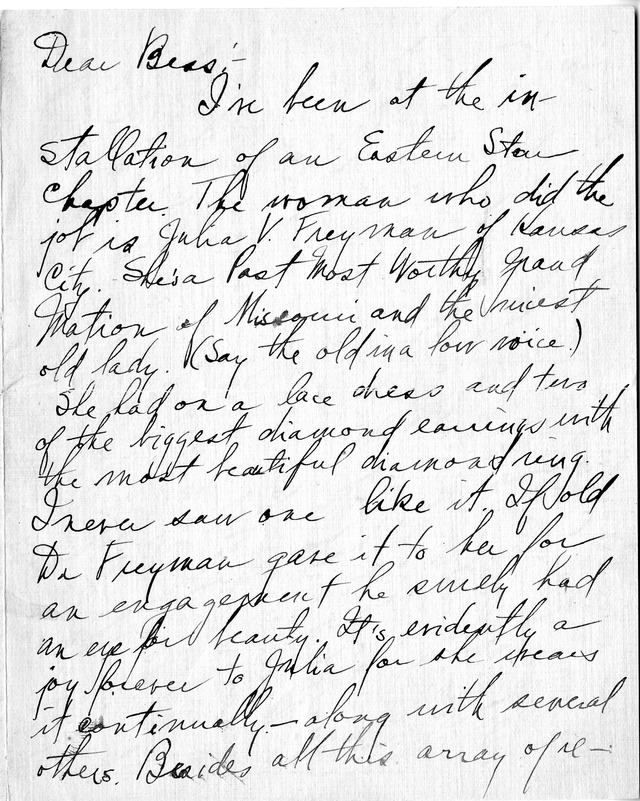 Dear Bess:-
I've been at the in-
stallation of an Eastern Star
Chapter. The woman who did the
job is Julia V. Freyman of Kansas
City. She's a Past Most Worthy Grand
Matron of Missouri and the nicest
old lady. (Say the old in a low voice.)
She had on a lace dress and two
of the biggest diamond earrings with
the most beautiful diamond ring.
I never saw one like it. If old
Dr Freyman gave it to her for
an engagement he surely had
an eye for beauty. It's evidently a
joy forever to Julia for she wears
it continually - along with several
others. Besides all this array of re-